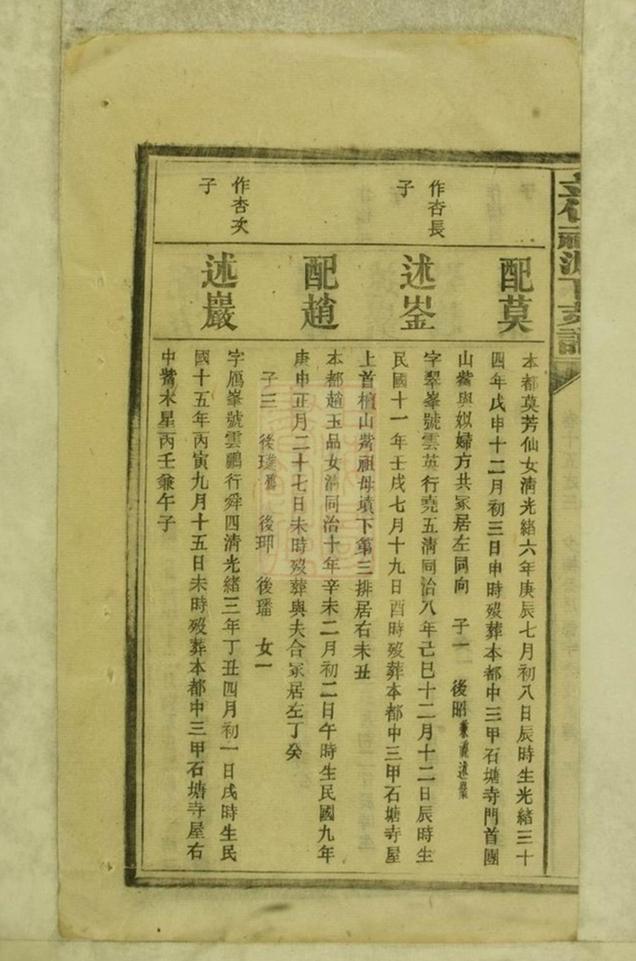 下支譜
配莫
本都莫芳仙女清光緒六年庚辰七月初八日辰時生光緒三十
四年戊申十二月初三日申時歿葬本都中三甲石塘寺門首團
山觜與姒婦方共冢居左同向 子一 後昭兼祧述巖
作杏長
子
述崟
字翠峯號雲英行堯五清同治八年己巳十二月十二日辰時生
民國十一年壬戌七月十九日酉時歿葬本都中三甲石塘寺屋
上首檀山觜祖母墳下第三排居右未丑
配趙
本都趙玉品女清同治十年辛未二月初二日午時生民國九年
庚申正月二十七日未時歿葬與夫合冢居左丁癸
子三 後 後 後璠 女一
作杏次
子
述巖
字鴈峯號雲鵬行舜四清光緒三年丁丑四月初一日戌時生民
國十五年丙寅九月十五日未時歿葬本都中三甲石塘寺屋右
中觜木星丙壬兼午子